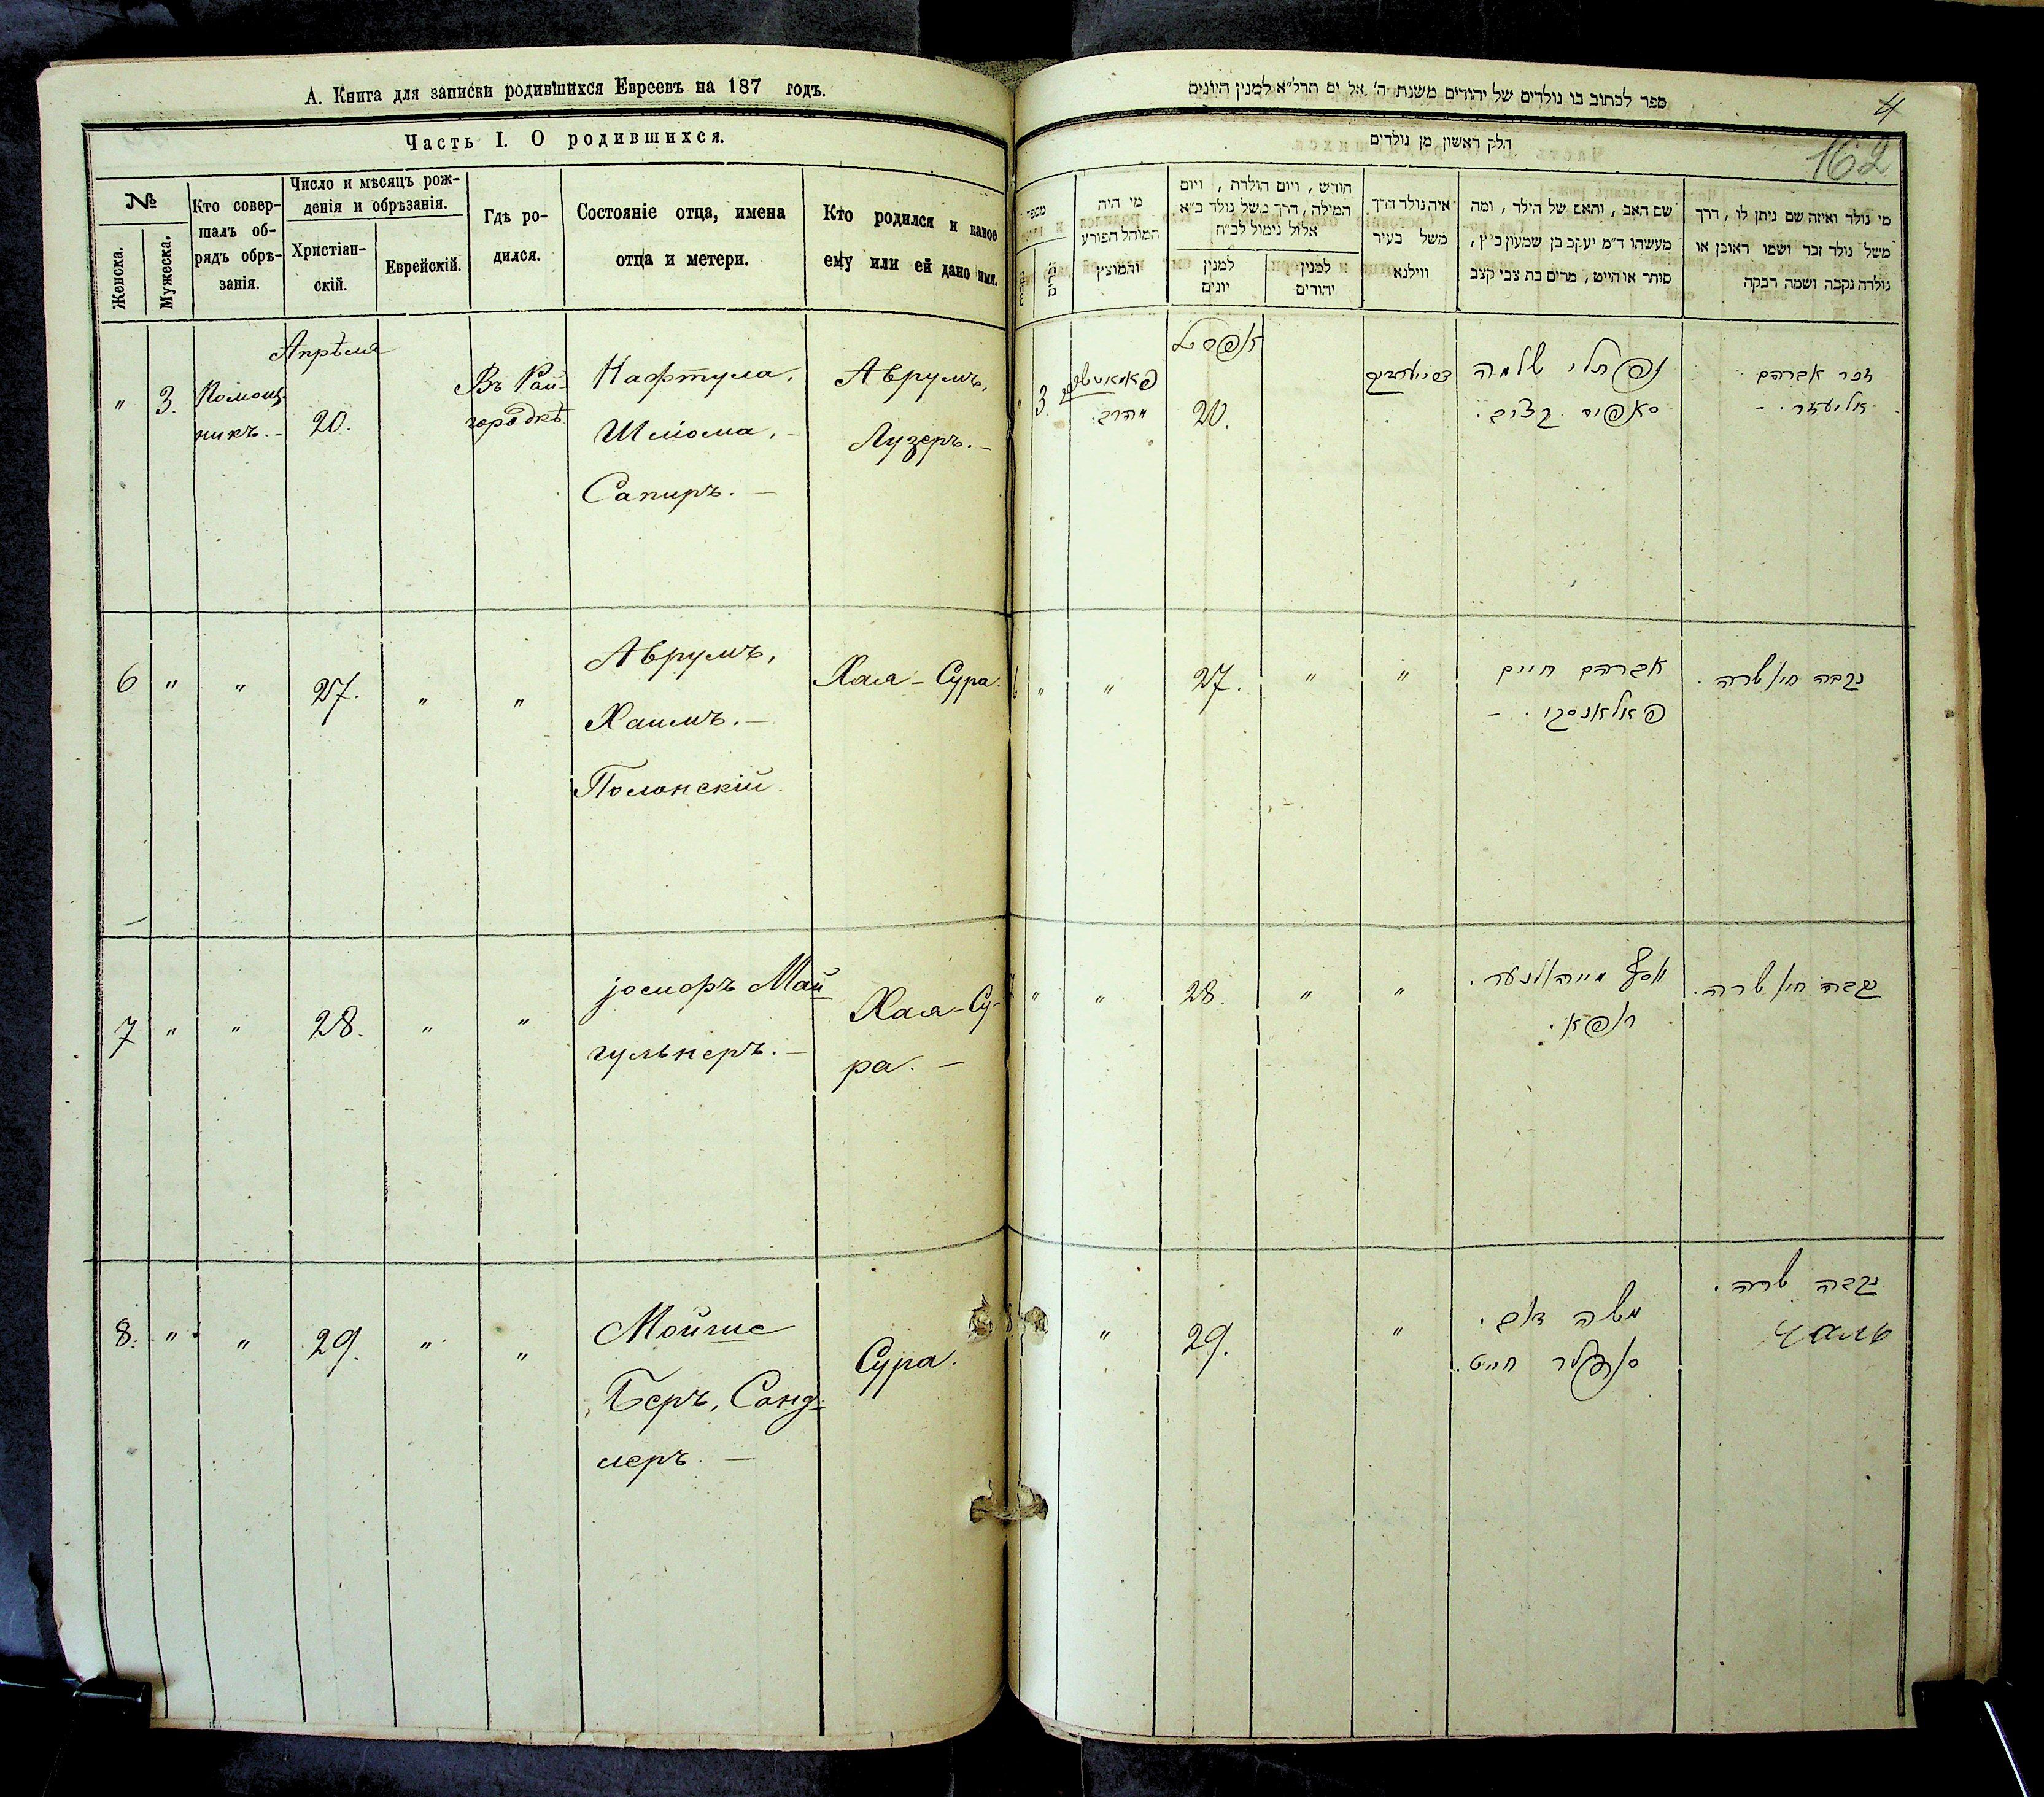 А. Книга для записки родившихся Евреевъ на 187 годъ.
Часть I. О родившихся.
№
Женска.
Мужеска.
Кто совер-
шалъ об-
рядъ обрѣ-
занія.
Число и мѣсяцъ рож-
денія и обрѣзанія.
Христіан-
скій.
Еврейскій.
Гдѣ ро-
дился.
Состояніе отца, имена
отца и метери.
Кто родился и какое
ему или ей дано имя.
Апрѣля
" 3. Помощ-
никъ. 20. Въ Рай-
городкѣ.
Нафтула,
Шлома,
Сапиръ.
Аврумъ,
Лузеръ.
6 " " 27. " "
Аврумъ,
Хаимъ.
Полонскій.
Хая-Сура.
7 " " 28. " "
Іосифъ Май
гульнеръ.
Хая-Су-
ра.
8. " " 29. " "
Мойше
Беръ, Санд-
леръ.
Сура.
ספר לכתוב בו נולדים של יהודים משנת ה' אל ים תרל"א למנין היונים
4
162
חלק ראשון מן נולדים
מספר
מי היה
המוהל הפורע
והמוצץ
חודש, ויום הולדת, ויום
המילה, דרך משל נולד כ"א
אלול נימול לכ"ח
למנין
יונים
למנין
יהודים
איה נולד דרך
משל בעיר
ווילנא
שם האב, והאם של הילד, ומה
מעשהו ד"מ יעקב בן שמעון כ"ץ,
סוחר או חייט, מרים בת צבי קצב
מי נולד ואיזה שם ניתן לו, דרך
משל נולד זכר ושמו ראובן או
נולדה נקבה ושמה רבקה
3. 20.
נפתלי שלמה
סאפיר
זכר אברהם
אליעזר.
" " 27. " "
אברהם חיים
פאלאנסקי.
נקבה חי' שרה.
" " 28. " "
יוסף
רופא.
נקבה חי' שרה.
" 29. "
משה
סנדלר חייט.
נקבה שרה.